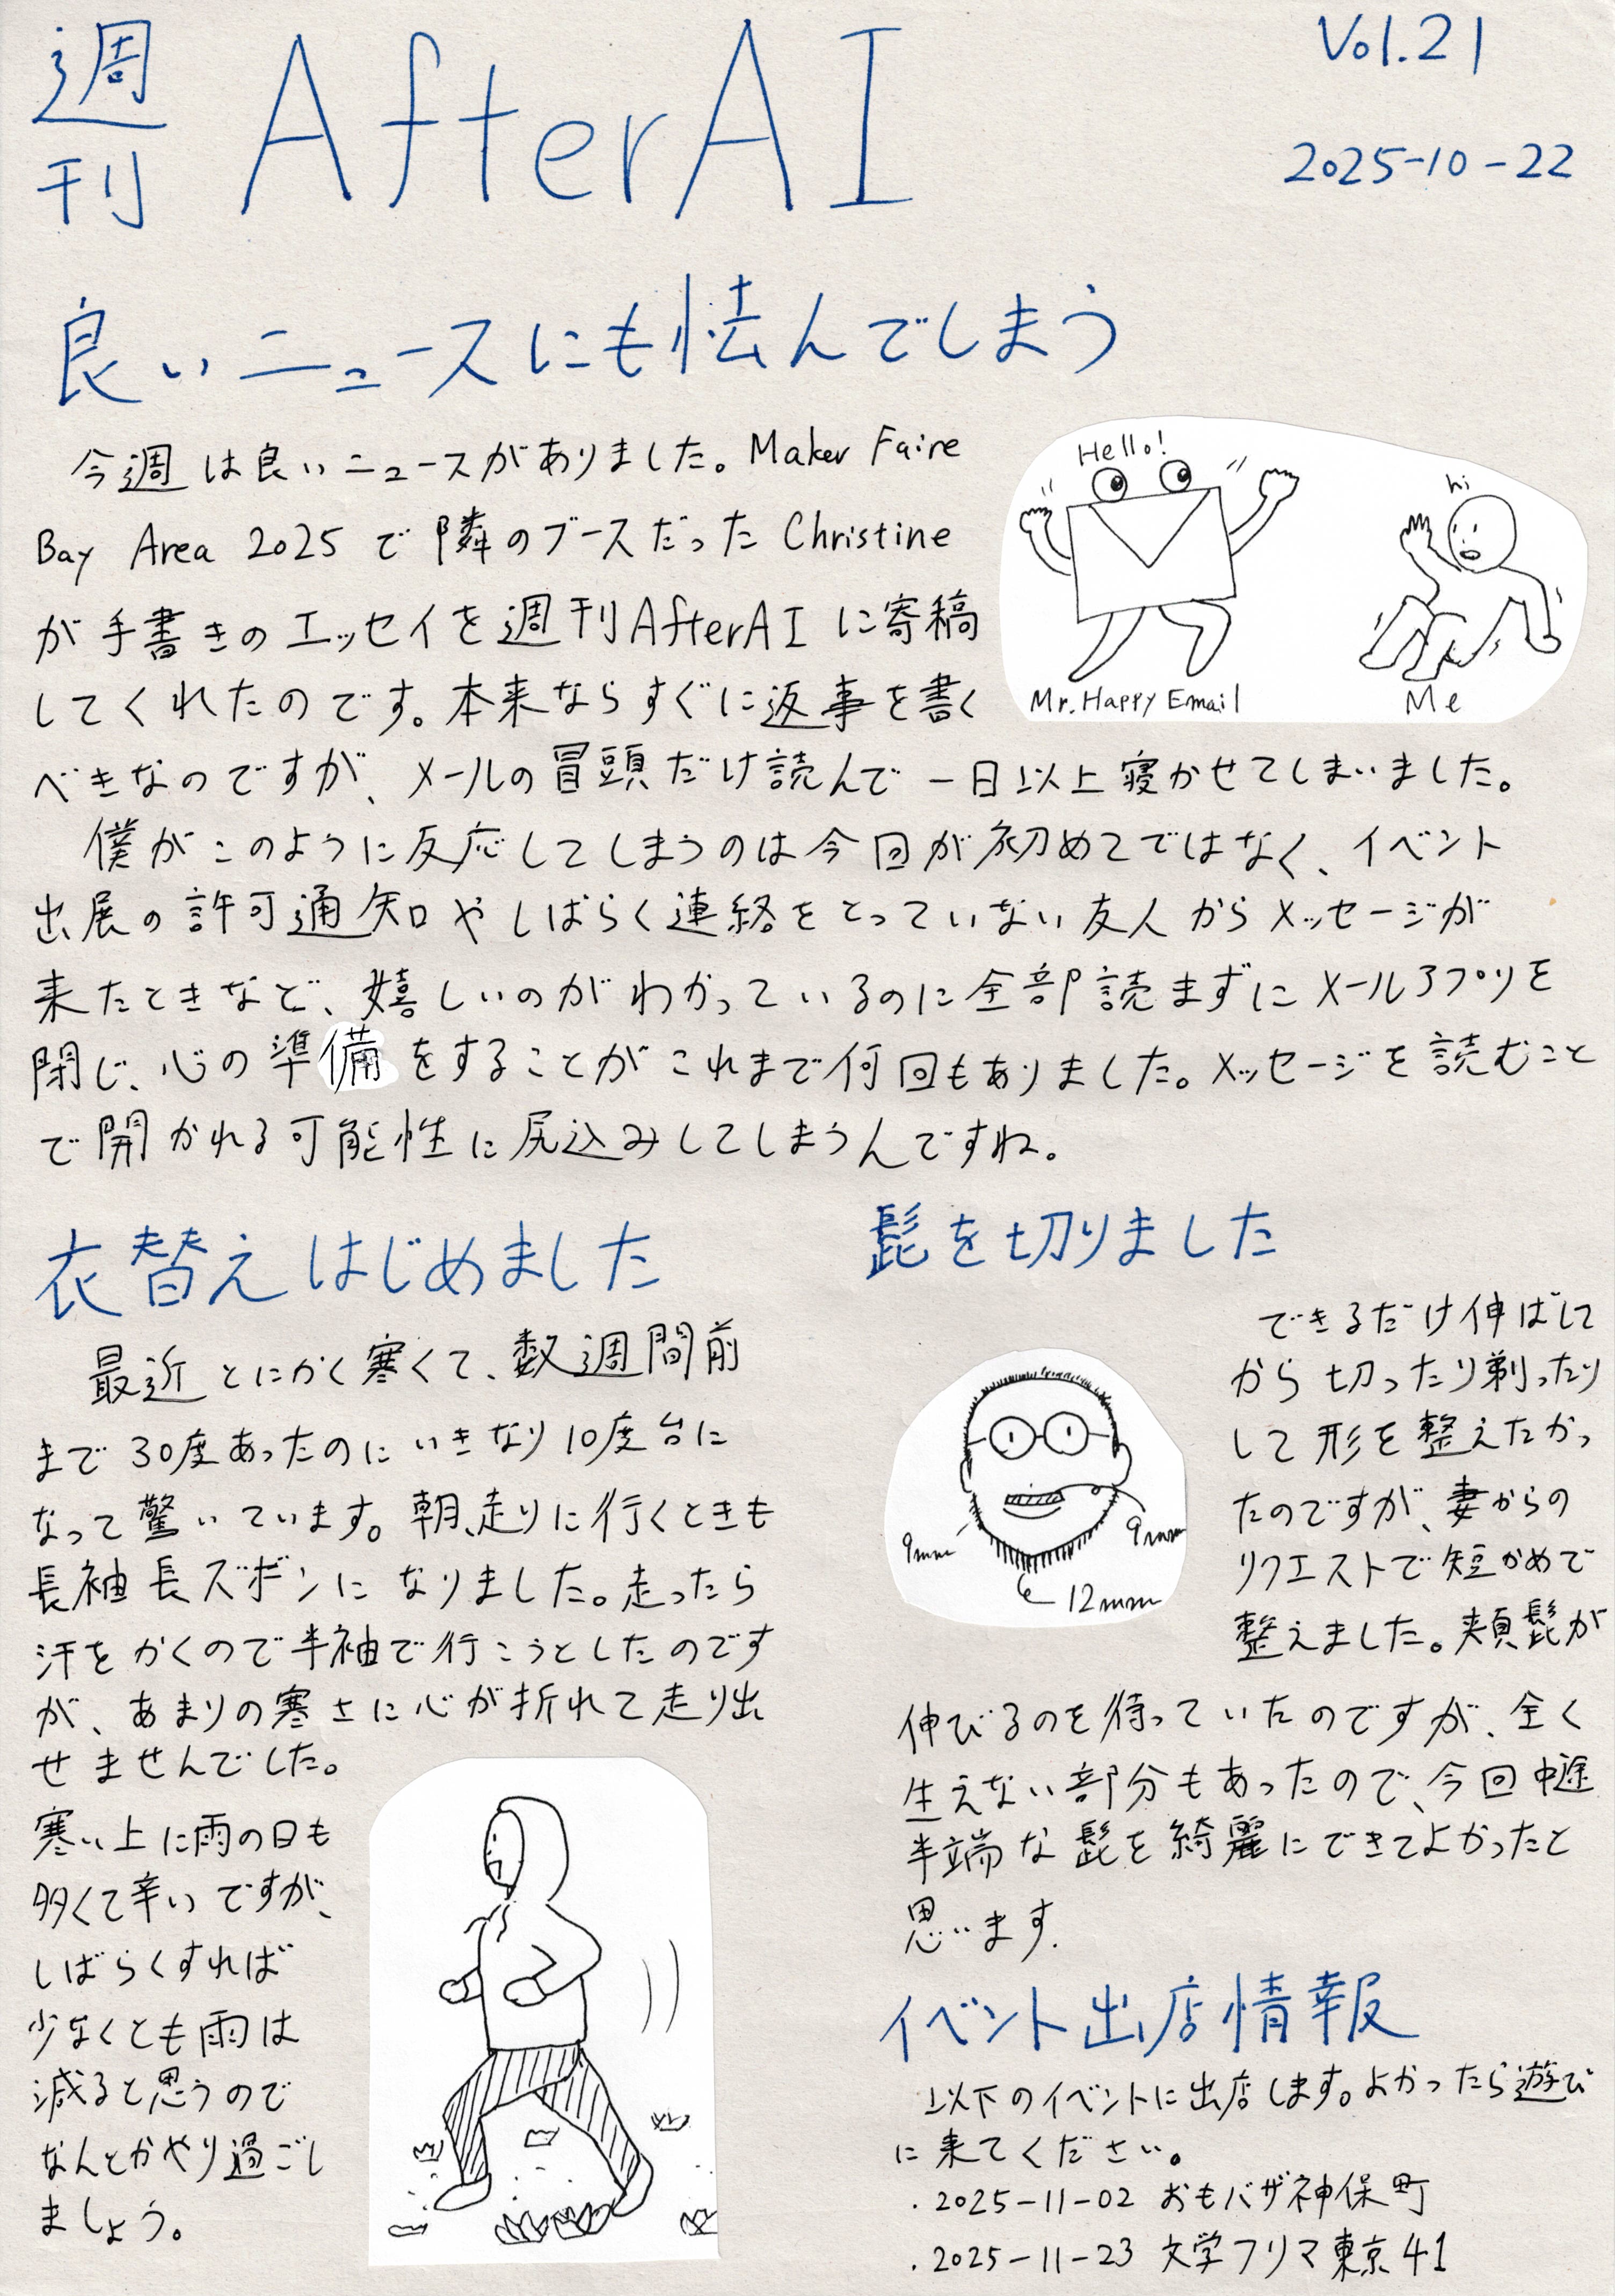 週刊 AfterAI
Vol.21
2025-10-22
良いニュースにも怯んでしまう
今週は良いニュースがありました。Maker Faire
Bay Area 2025 で隣のブースだった Christine
が手書きのエッセイを週刊AfterAI に寄稿
してくれたのです。本来ならすぐに返事を書く
べきなのですが、メールの冒頭だけ読んで一日以上寝かせてしまいました。
僕がこのように反応してしまうのは今回が初めてではなく、イベント
出展の許可通知やしばらく連絡をとっていない友人からメッセージが
来たときなど、嬉しいのがわかっているのに全部読まずにメールアプリを
閉じ、心の準備をすることがこれまで何回もありました。メッセージを読むこと
で開かれる可能性に尻込みしてしまうんですね。
Hello!
hi
Mr. Happy Email
Me
衣替えはじめました
最近とにかく寒くて、数週間前
まで30度あったのにいきなり10度台に
なって驚いています。朝、走りに行くときも
長袖長ズボンになりました。走ったら
汗をかくので半袖で行こうとしたのです
が、あまりの寒さに心が折れて走り出
せませんでした。
寒い上に雨の日も
多くて辛いですが、
しばらくすれば
少なくとも雨は
減ると思うので
なんとかやり過ごし
ましょう。
髭を切りました
できるだけ伸ばして
から切ったり剃ったり
して形を整えたかっ
たのですが、妻からの
リクエストで短かめで
整えました。頬髭が
伸びるのを待っていたのですが、全く
生えない部分もあったので、今回中途
半端な髭を綺麗にできてよかったと
思います.
9mm
9mm
12mm
イベント出店情報
以下のイベントに出店します。よかったら遊び
に来てください。
. 2025-11-02 おもバザ神保町
. 2025-11-23 文学フリマ東京41